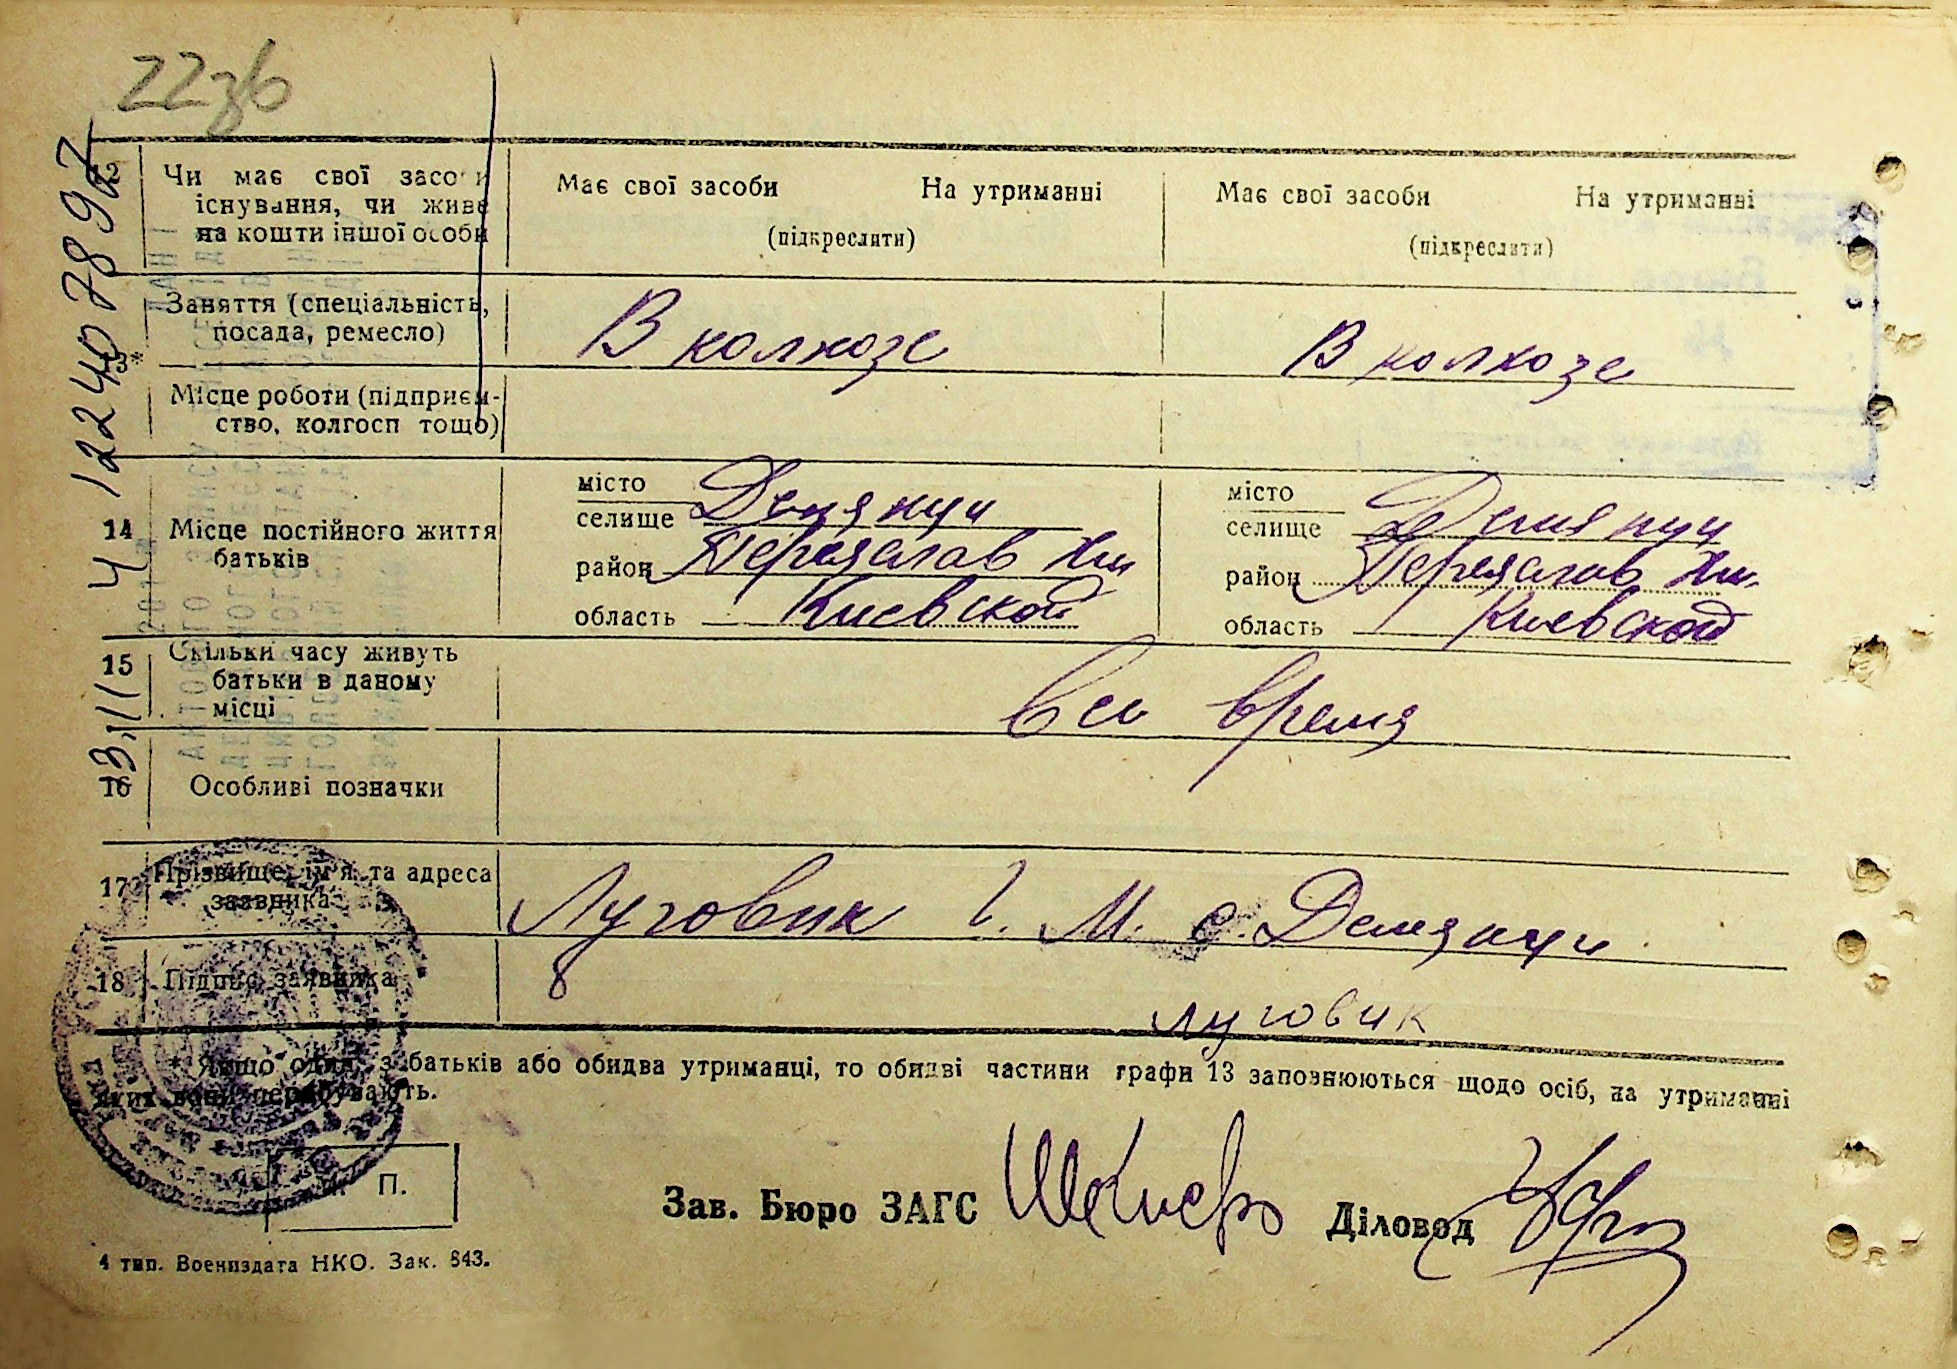 22зв
12
Чи має свої засоби Має свої засоби На утриманні Має свої засоби На утриманні
існування, чи живе
на кошти іншої особи (підкреслити) (підкреслити)
Заняття (спеціальність, В колхозе В колхозе
посада, ремесло)
13*
Місце роботи (підприєм-
ство, колгосп тощо)
14 Місце постійного життя
батьків
місто
селище Демянци
район Переяслав Хм
область Киевской
місто
селище Демянци
район Переяслав Хм.
область Киевской
15 Скільки часу живуть
батьки в даному
місці
все время
16 Особливі позначки
17 Прізвище, ім'я та адреса
заявника
Луговик Г. М. с. Демянци
18 Підпис заявника
Луговик
* Якщо один з батьків або обидва утриманці, то обидві частини графи 13 заповнюються щодо осіб, на утриманні
яких вони перебувають.
П.
Зав. Бюро ЗАГС Діловод
4 тип. Воениздата НКО. Зак. 843.